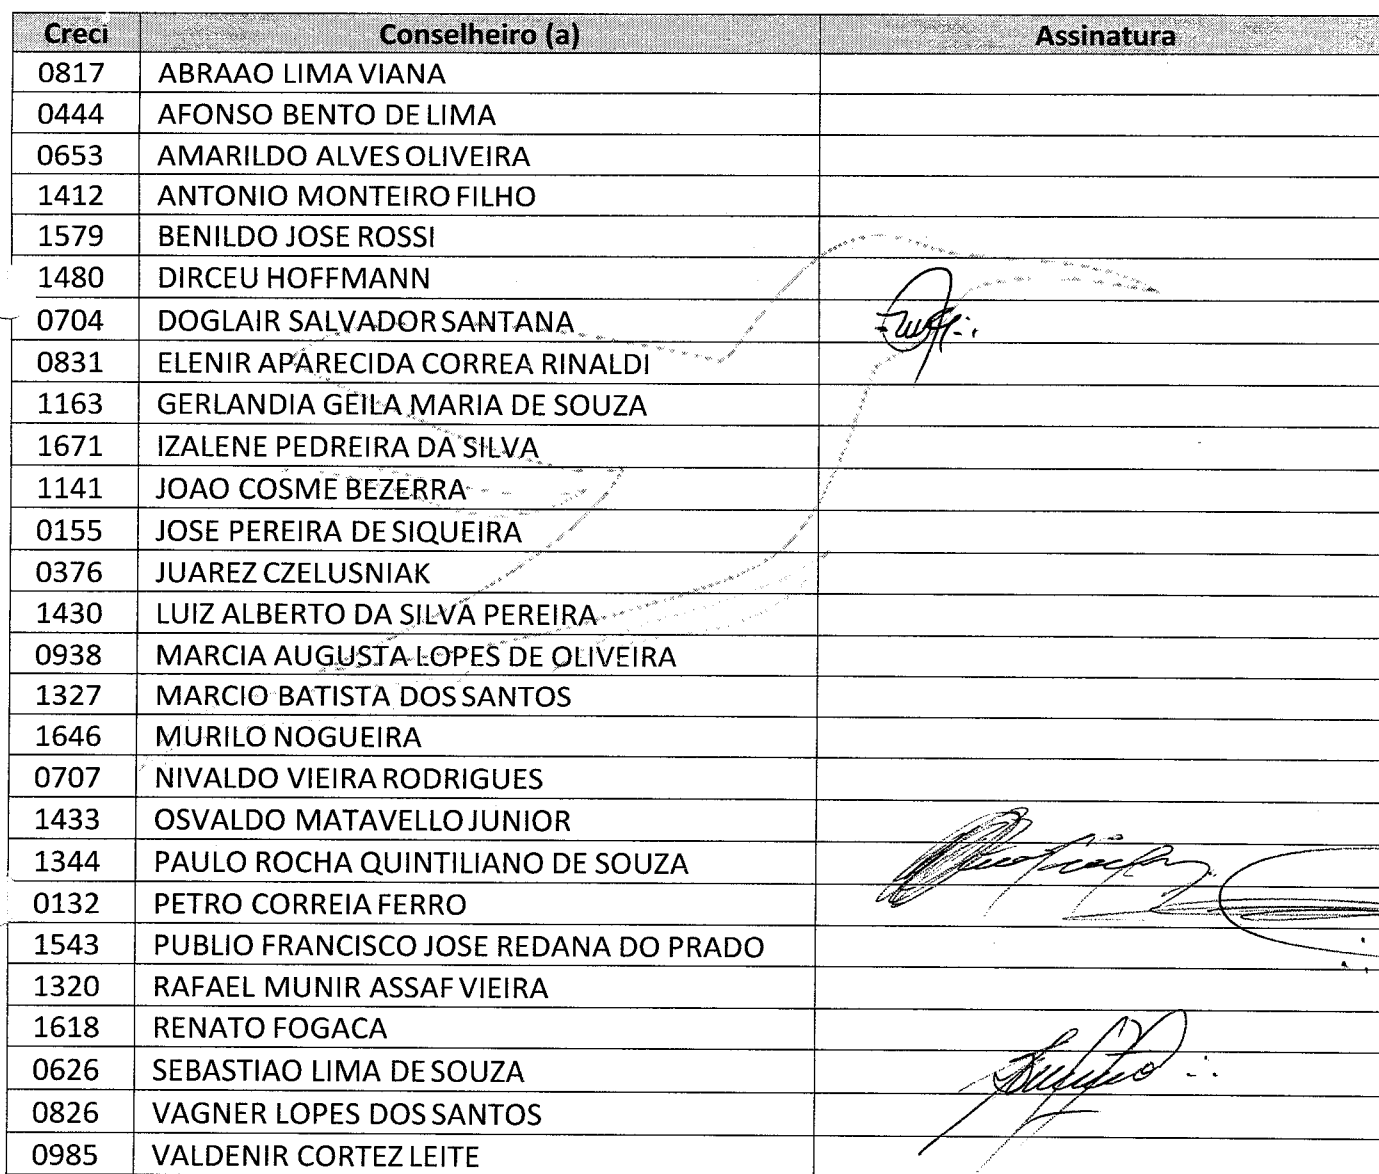 Creci Conselheiro (a) Assinatura
0817 ABRAAO LIMA VIANA
0444 AFONSO BENTO DE LIMA
0653 AMARILDO ALVES OLIVEIRA
1412 ANTONIO MONTEIRO FILHO
1579 BENILDO JOSE ROSSI
1480 DIRCEU HOFFMANN
0704 DOGLAIR SALVADOR SANTANA
0831 ELENIR APARECIDA CORREA RINALDI
1163 GERLANDIA GEILA MARIA DE SOUZA
1671 IZALENE PEDREIRA DA SILVA
1141 JOAO COSME BEZERRA
0155 JOSE PEREIRA DE SIQUEIRA
0376 JUAREZ CZELUSNIAK
1430 LUIZ ALBERTO DA SILVA PEREIRA
0938 MARCIA AUGUSTA LOPES DE OLIVEIRA
1327 MARCIO BATISTA DOS SANTOS
1646 MURILO NOGUEIRA
0707 NIVALDO VIEIRA RODRIGUES
1433 OSVALDO MATAVELLO JUNIOR
1344 PAULO ROCHA QUINTILIANO DE SOUZA
0132 PETRO CORREIA FERRO
1543 PUBLIO FRANCISCO JOSE REDANA DO PRADO
1320 RAFAEL MUNIR ASSAF VIEIRA
1618 RENATO FOGACA
0626 SEBASTIAO LIMA DE SOUZA
0826 VAGNER LOPES DOS SANTOS
0985 VALDENIR CORTEZ LEITE